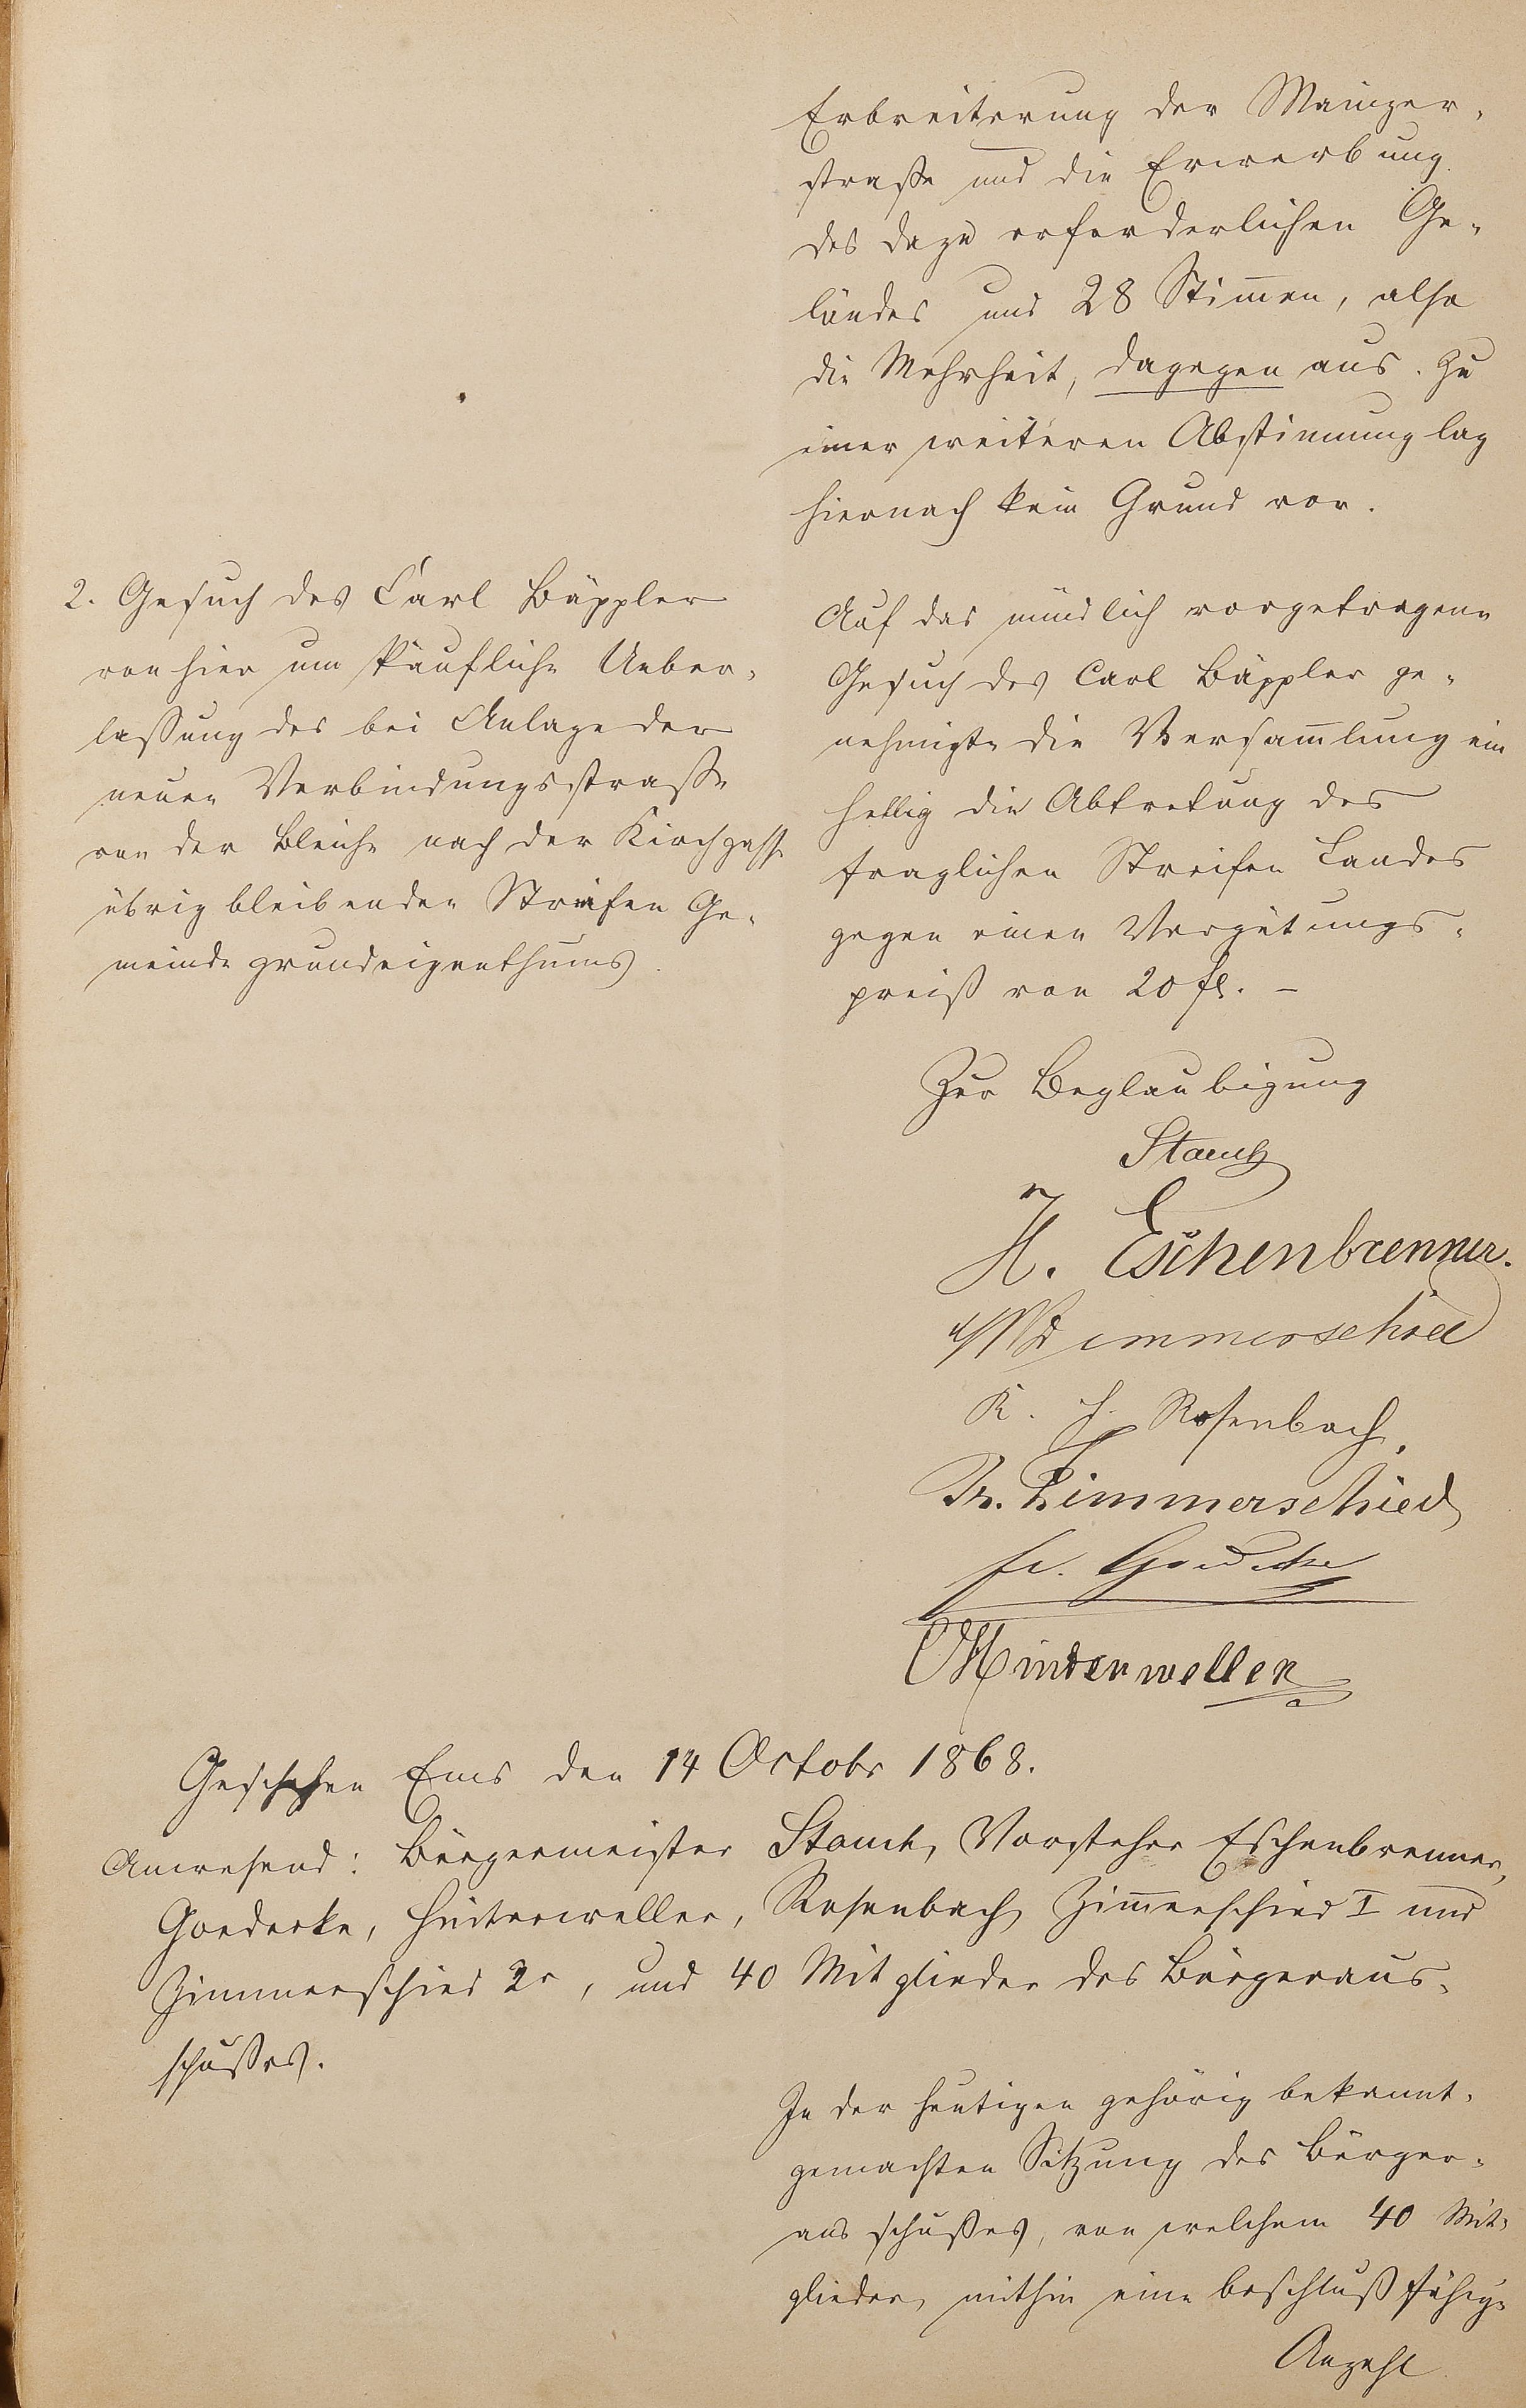 Erbreiterung der Mainzer-
straße und die Erwerbung
des dazu erforderlichen Ge-
ländes und 28 Stim̄en, also
die Mehrheit, dagegen aus. Zu
einer weiteren Abstimmung lag
hiernach kein Grund vor.
2. Gesuch des Carl Bäppler
von hier um käufliche Ueber-
lassung des bei Anlage der
neuen Verbindungsstraße
von der Bleiche nach der Kirchgasse
übrig bleibenden Streifen Ge-
meinde grundeigenthums.
Auf das mündlich vorgetragene
Gesuch des Carl Bäppler ge-
nehmigte die Versam̄lung ein
hellig die Abtretung des
fraglichen Streifen Landes
gegen einen Vergütungs-
preiß von 20 fl. –
Zur Beglaubigung
Stauch
H. Eschenbrenner.
W Zimmerschied
K. H. Rosenbach.
Fr. Zimmerschied
Fr. Goedecke
C Hinterweller
Geschehen Ems den 14 Octobr 1868.
Anwesend: Bürgermeister Stauch, Vorsteher Eschenbrenner,
Goedecke, Hinterweller, Rosenbach, Zim̄erschied I und
Zimmerschied 2r, und 40 Mitglieder des Bürgeraus-
schußes.
In der heutigen gehörig bekannt-
gemachten Sitzung des Bürger-
aus schußes, von welchem 40 Mit-
glieder, mithin eine beschluß fähige
Anzahl